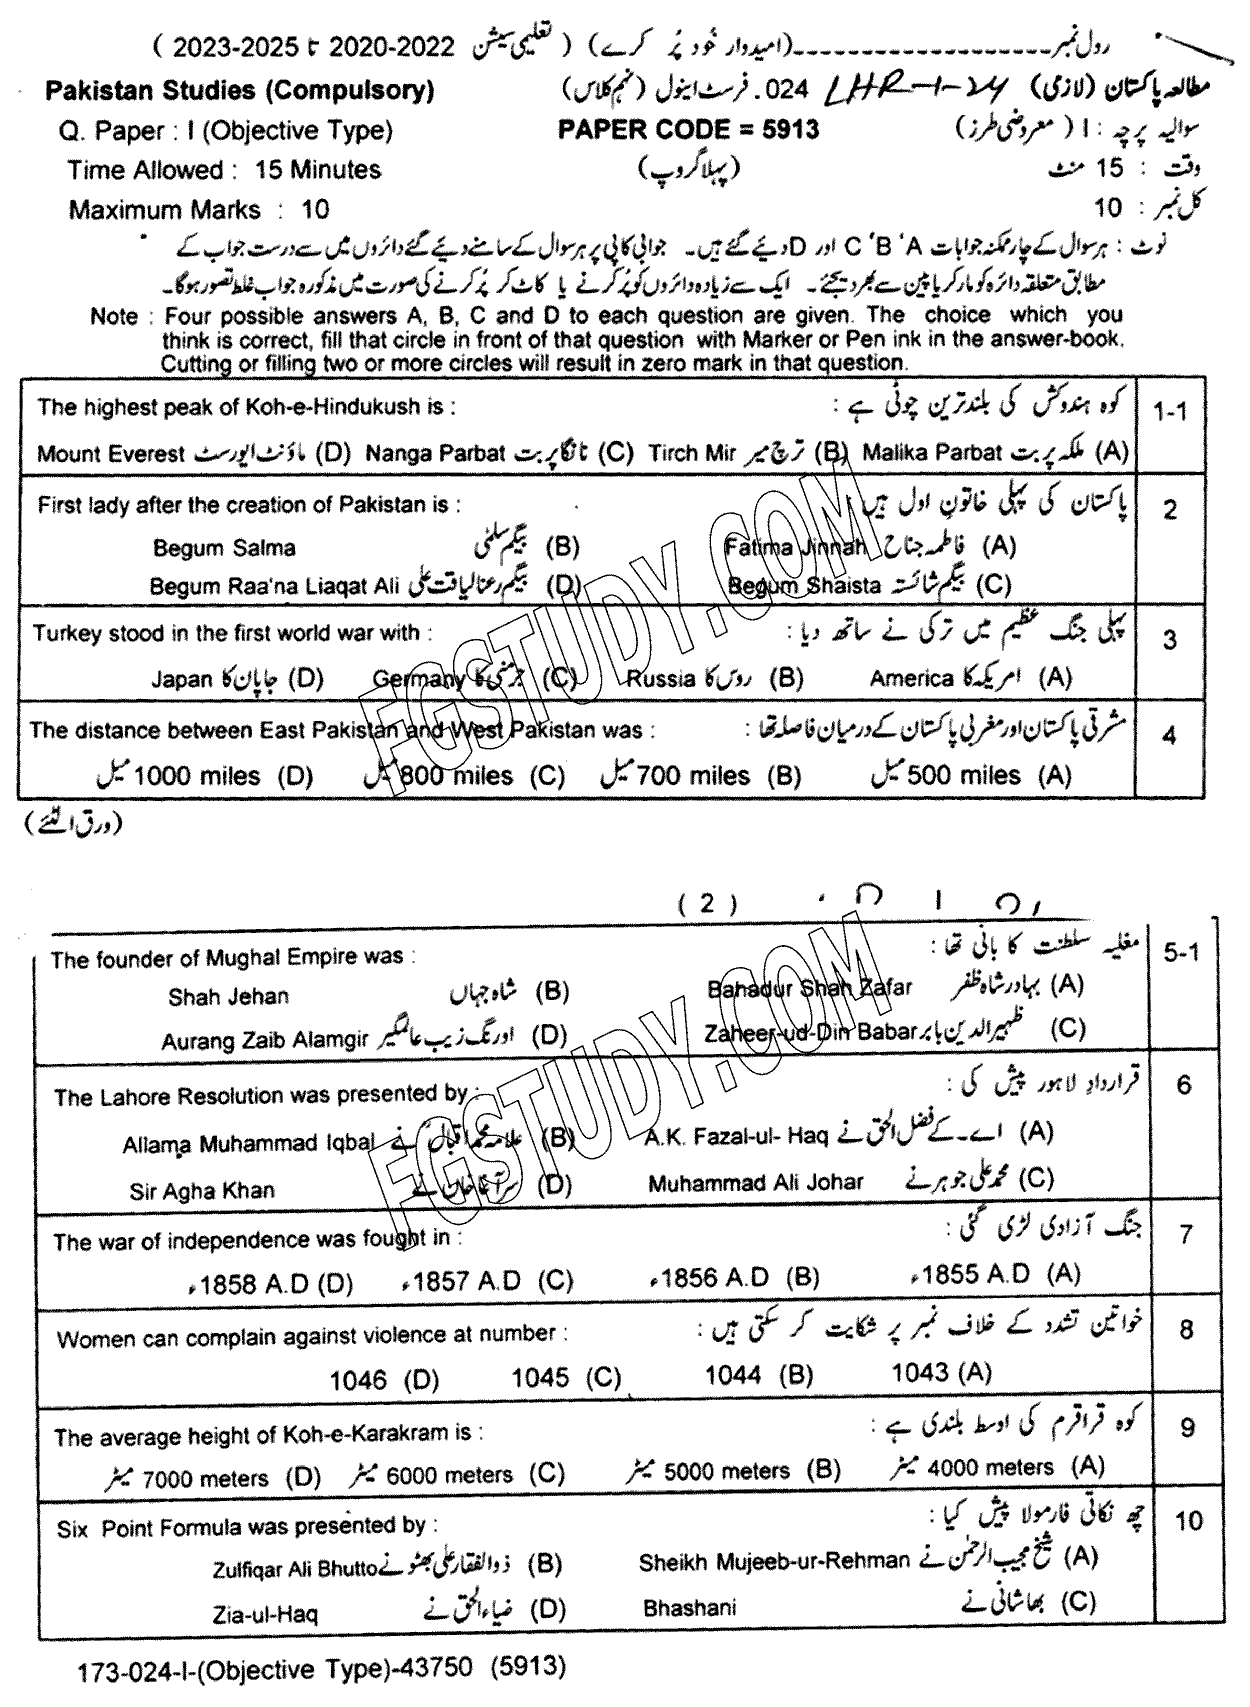 رول نمبر--------------------(امیدوار خود پُر کرے) ( تعلیمی سیشن 2020-2022 تا 2023-2025 )
Pakistan Studies (Compulsory) مطالعہ پاکستان (لازمی) LHR-1-24 024. فرسٹ اینول (نہم کلاس)
Q. Paper : I (Objective Type) PAPER CODE = 5913 سوالیہ پرچہ : I ( معروضی طرز)
Time Allowed : 15 Minutes (پہلا گروپ) وقت : 15 منٹ
Maximum Marks : 10 کل نمبر : 10
نوٹ : ہر سوال کے چار ممکنہ جوابات A 'B 'C اور D دیئے گئے ہیں۔ جوابی کاپی پر ہر سوال کے سامنے دیئے گئے دائروں میں سے درست جواب کے
مطابق متعلقہ دائرہ کو مارکر یا پین سے بھر دیجئے۔ ایک سے زیادہ دائروں کو پُر کرنے یا کاٹ کر پُر کرنے کی صورت میں مذکورہ جواب غلط تصور ہوگا۔
Note : Four possible answers A, B, C and D to each question are given. The choice which you
think is correct, fill that circle in front of that question with Marker or Pen ink in the answer-book.
Cutting or filling two or more circles will result in zero mark in that question.
The highest peak of Koh-e-Hindukush is : کوہ ہندوکش کی بلند ترین چوٹی ہے : 1-1
Mount Everest ماؤنٹ ایورسٹ (D) Nanga Parbat نانگا پربت (C) Tirch Mir ترچ میر (B) Malika Parbat ملکہ پربت (A)
First lady after the creation of Pakistan is : پاکستان کی پہلی خاتون اول ہیں : 2
Begum Salma بیگم سلمٰی (B) Fatima Jinnah فاطمہ جناح (A)
Begum Raa'na Liaqat Ali بیگم رعنا لیاقت علی (D) Begum Shaista بیگم شائستہ (C)
Turkey stood in the first world war with : پہلی جنگ عظیم میں ترکی نے ساتھ دیا : 3
Japan جاپان کا (D) Germany جرمنی کا (C) Russia روس کا (B) America امریکہ کا (A)
The distance between East Pakistan and West Pakistan was : مشرقی پاکستان اور مغربی پاکستان کے درمیان فاصلہ تھا : 4
میل 1000 miles (D) میل 800 miles (C) میل 700 miles (B) میل 500 miles (A)
(ورق الٹئے)
( 2 )
The founder of Mughal Empire was : مغلیہ سلطنت کا بانی تھا : 5-1
Shah Jehan شاہ جہاں (B) Bahadur Shah Zafar بہادر شاہ ظفر (A)
Aurang Zaib Alamgir اورنگ زیب عالمگیر (D) Zaheer-ud-Din Babar ظہیر الدین بابر (C)
The Lahore Resolution was presented by : قرارداد لاہور پیش کی : 6
Allama Muhammad Iqbal علامہ محمد اقبال نے (B) A.K. Fazal-ul- Haq اے۔کے فضل الحق نے (A)
Sir Agha Khan سر آغا خان نے (D) Muhammad Ali Johar محمد علی جوہر نے (C)
The war of independence was fought in : جنگ آزادی لڑی گئی : 7
ء1858 A.D (D) ء1857 A.D (C) ء1856 A.D (B) ء1855 A.D (A)
Women can complain against violence at number : خواتین تشدد کے خلاف نمبر پر شکایت کر سکتی ہیں : 8
1046 (D) 1045 (C) 1044 (B) 1043 (A)
The average height of Koh-e-Karakram is : کوہ قراقرم کی اوسط بلندی ہے : 9
میٹر 7000 meters (D) میٹر 6000 meters (C) میٹر 5000 meters (B) میٹر 4000 meters (A)
Six Point Formula was presented by : چھ نکاتی فارمولا پیش کیا : 10
Zulfiqar Ali Bhutto ذوالفقار علی بھٹو نے (B) Sheikh Mujeeb-ur-Rehman شیخ مجیب الرحمٰن نے (A)
Zia-ul-Haq ضیاء الحق نے (D) Bhashani بھاشانی نے (C)
173-024-I-(Objective Type)-43750 (5913)
FGSTUDY.COM
FGSTUDY.COM